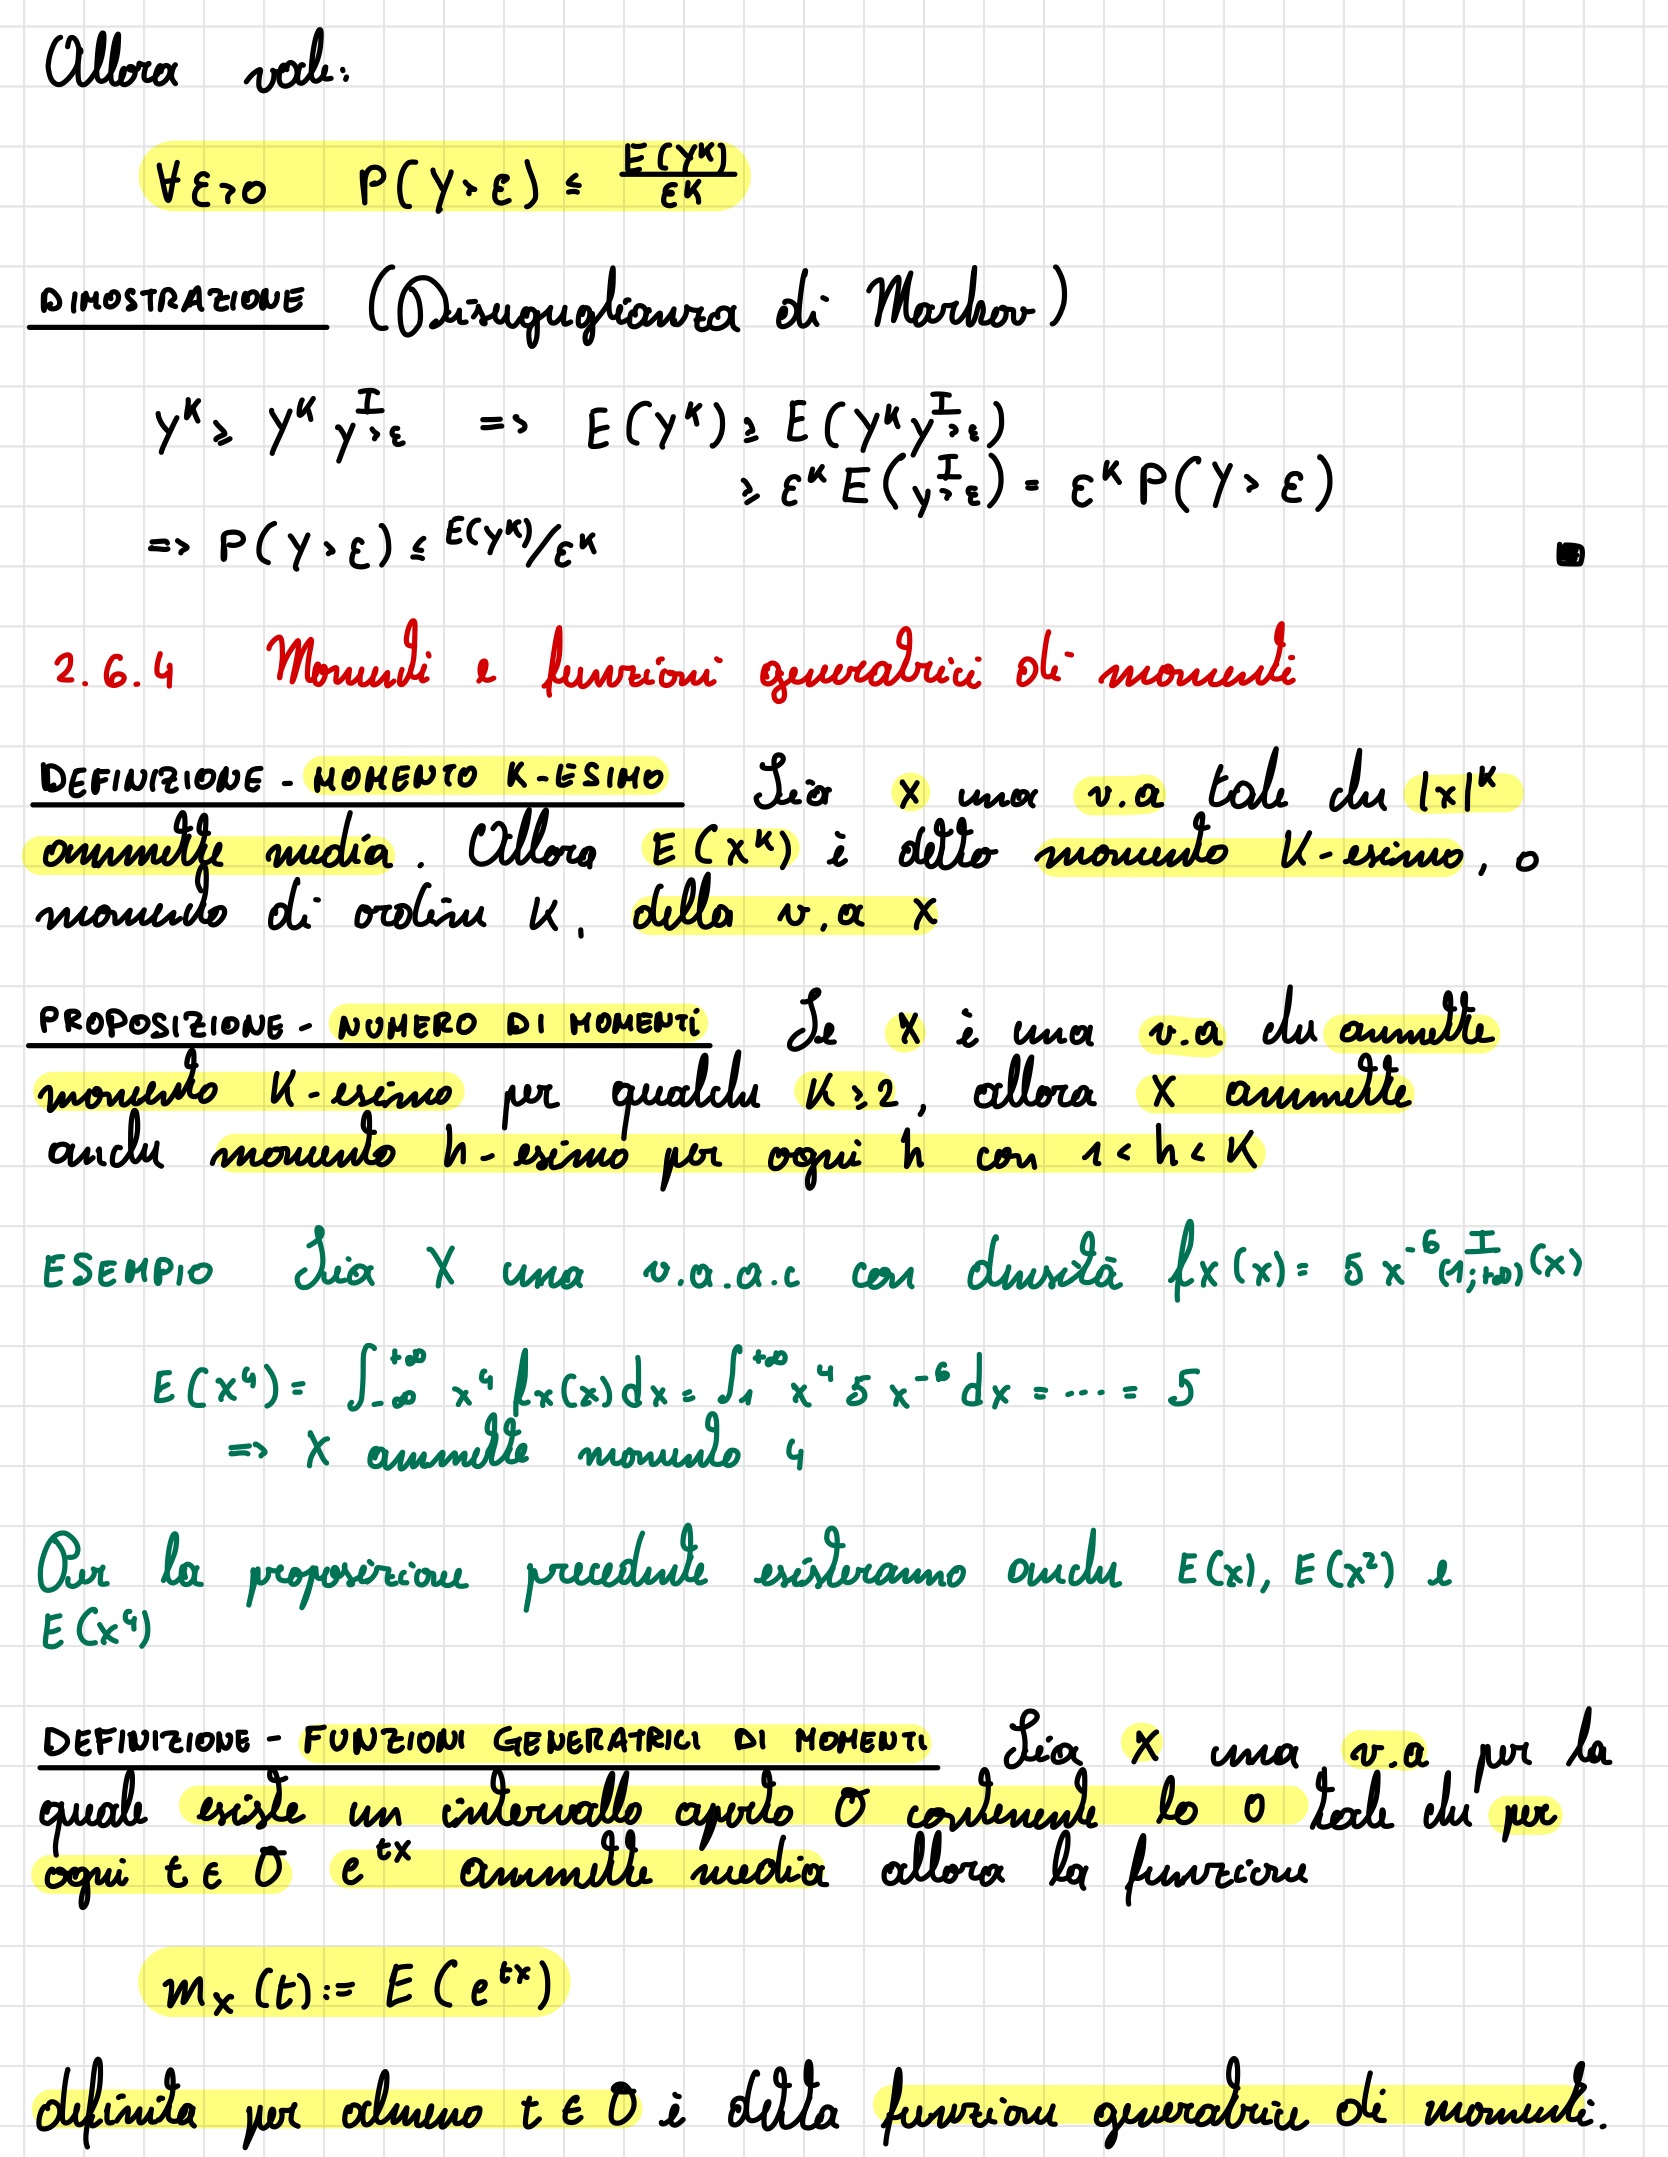 Allora vale:
∀ε>0 P(Y>ε) ≤ E(Y^K)/ε^K
DIMOSTRAZIONE (Disuguglianza di Markov)
Y^K ≥ Y^K I_{Y>ε} => E(Y^K) ≥ E(Y^K I_{Y>ε})
≥ ε^K E(I_{Y>ε}) = ε^K P(Y>ε)
=> P(Y>ε) ≤ E(Y^K)/ε^K
2.6.4 Momenti e funzioni generatrici di momenti
DEFINIZIONE - MOMENTO K-ESIMO Sia X una v.a tale che |X|^K
ammette media. Allora E(X^K) è detto momento K-esimo, o
momento di ordine K, della v.a X
PROPOSIZIONE - NUMERO DI MOMENTI Se X è una v.a che ammette
momento K-esimo per qualche K≥2, allora X ammette
anche momento h-esimo per ogni h con 1<h<K
ESEMPIO Sia X una v.a.a.c con densità fx(x) = 5x^-6 I_(1;+∞)(x)
E(X^4) = ∫_-∞^+∞ x^4 fx(x)dx = ∫_1^+∞ x^4 5x^-6 dx = ... = 5
=> X ammette momento 4
Per la proposizione precedente esisteranno anche E(X), E(X²) e
E(X^4)
DEFINIZIONE - FUNZIONI GENERATRICI DI MOMENTI Sia X una v.a per la
quale esiste un intervallo aperto O contenente lo 0 tale che per
ogni t ∈ O e^tX ammette media allora la funzione
m_X(t) := E(e^tX)
definita per almeno t ∈ O è detta funzione generatrice di momenti.